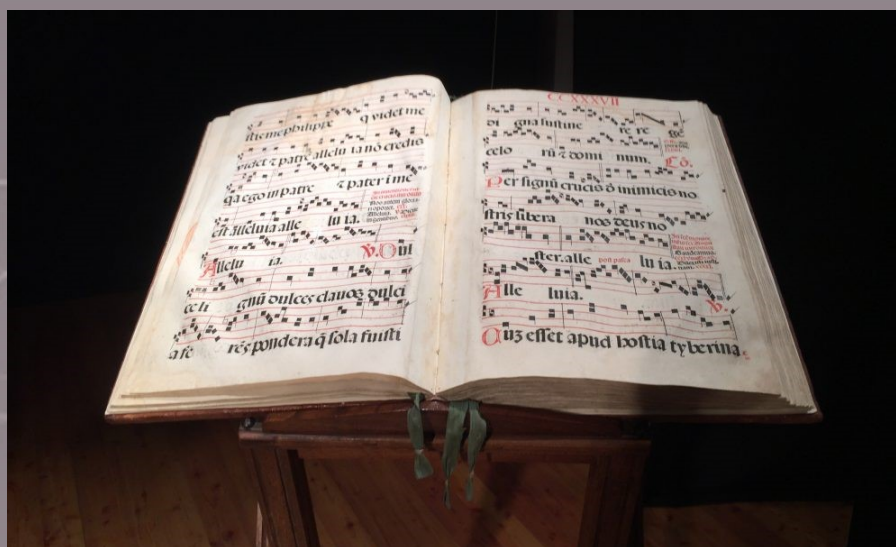 stis me philippe qui videt me
videt ⁊ patrē allelu ia nō credis
q̄a ego in patre ⁊ pater i me
est alleluia alle lu ia.
Allelu ia. ℣. Dul
ce li gnū dulces clavos dulci
a fe rēs pondera q̄ sola fuisti
CCXXXVII
di gna sustine re re gē
celo rū ⁊ domi num. Cō.
Per signū crucis d̄ inimicis no
stris libera nos deus no
ster. alle post pasca lu ia.
Alle luia. ℣.
Cū esset apud hostia tyberina.